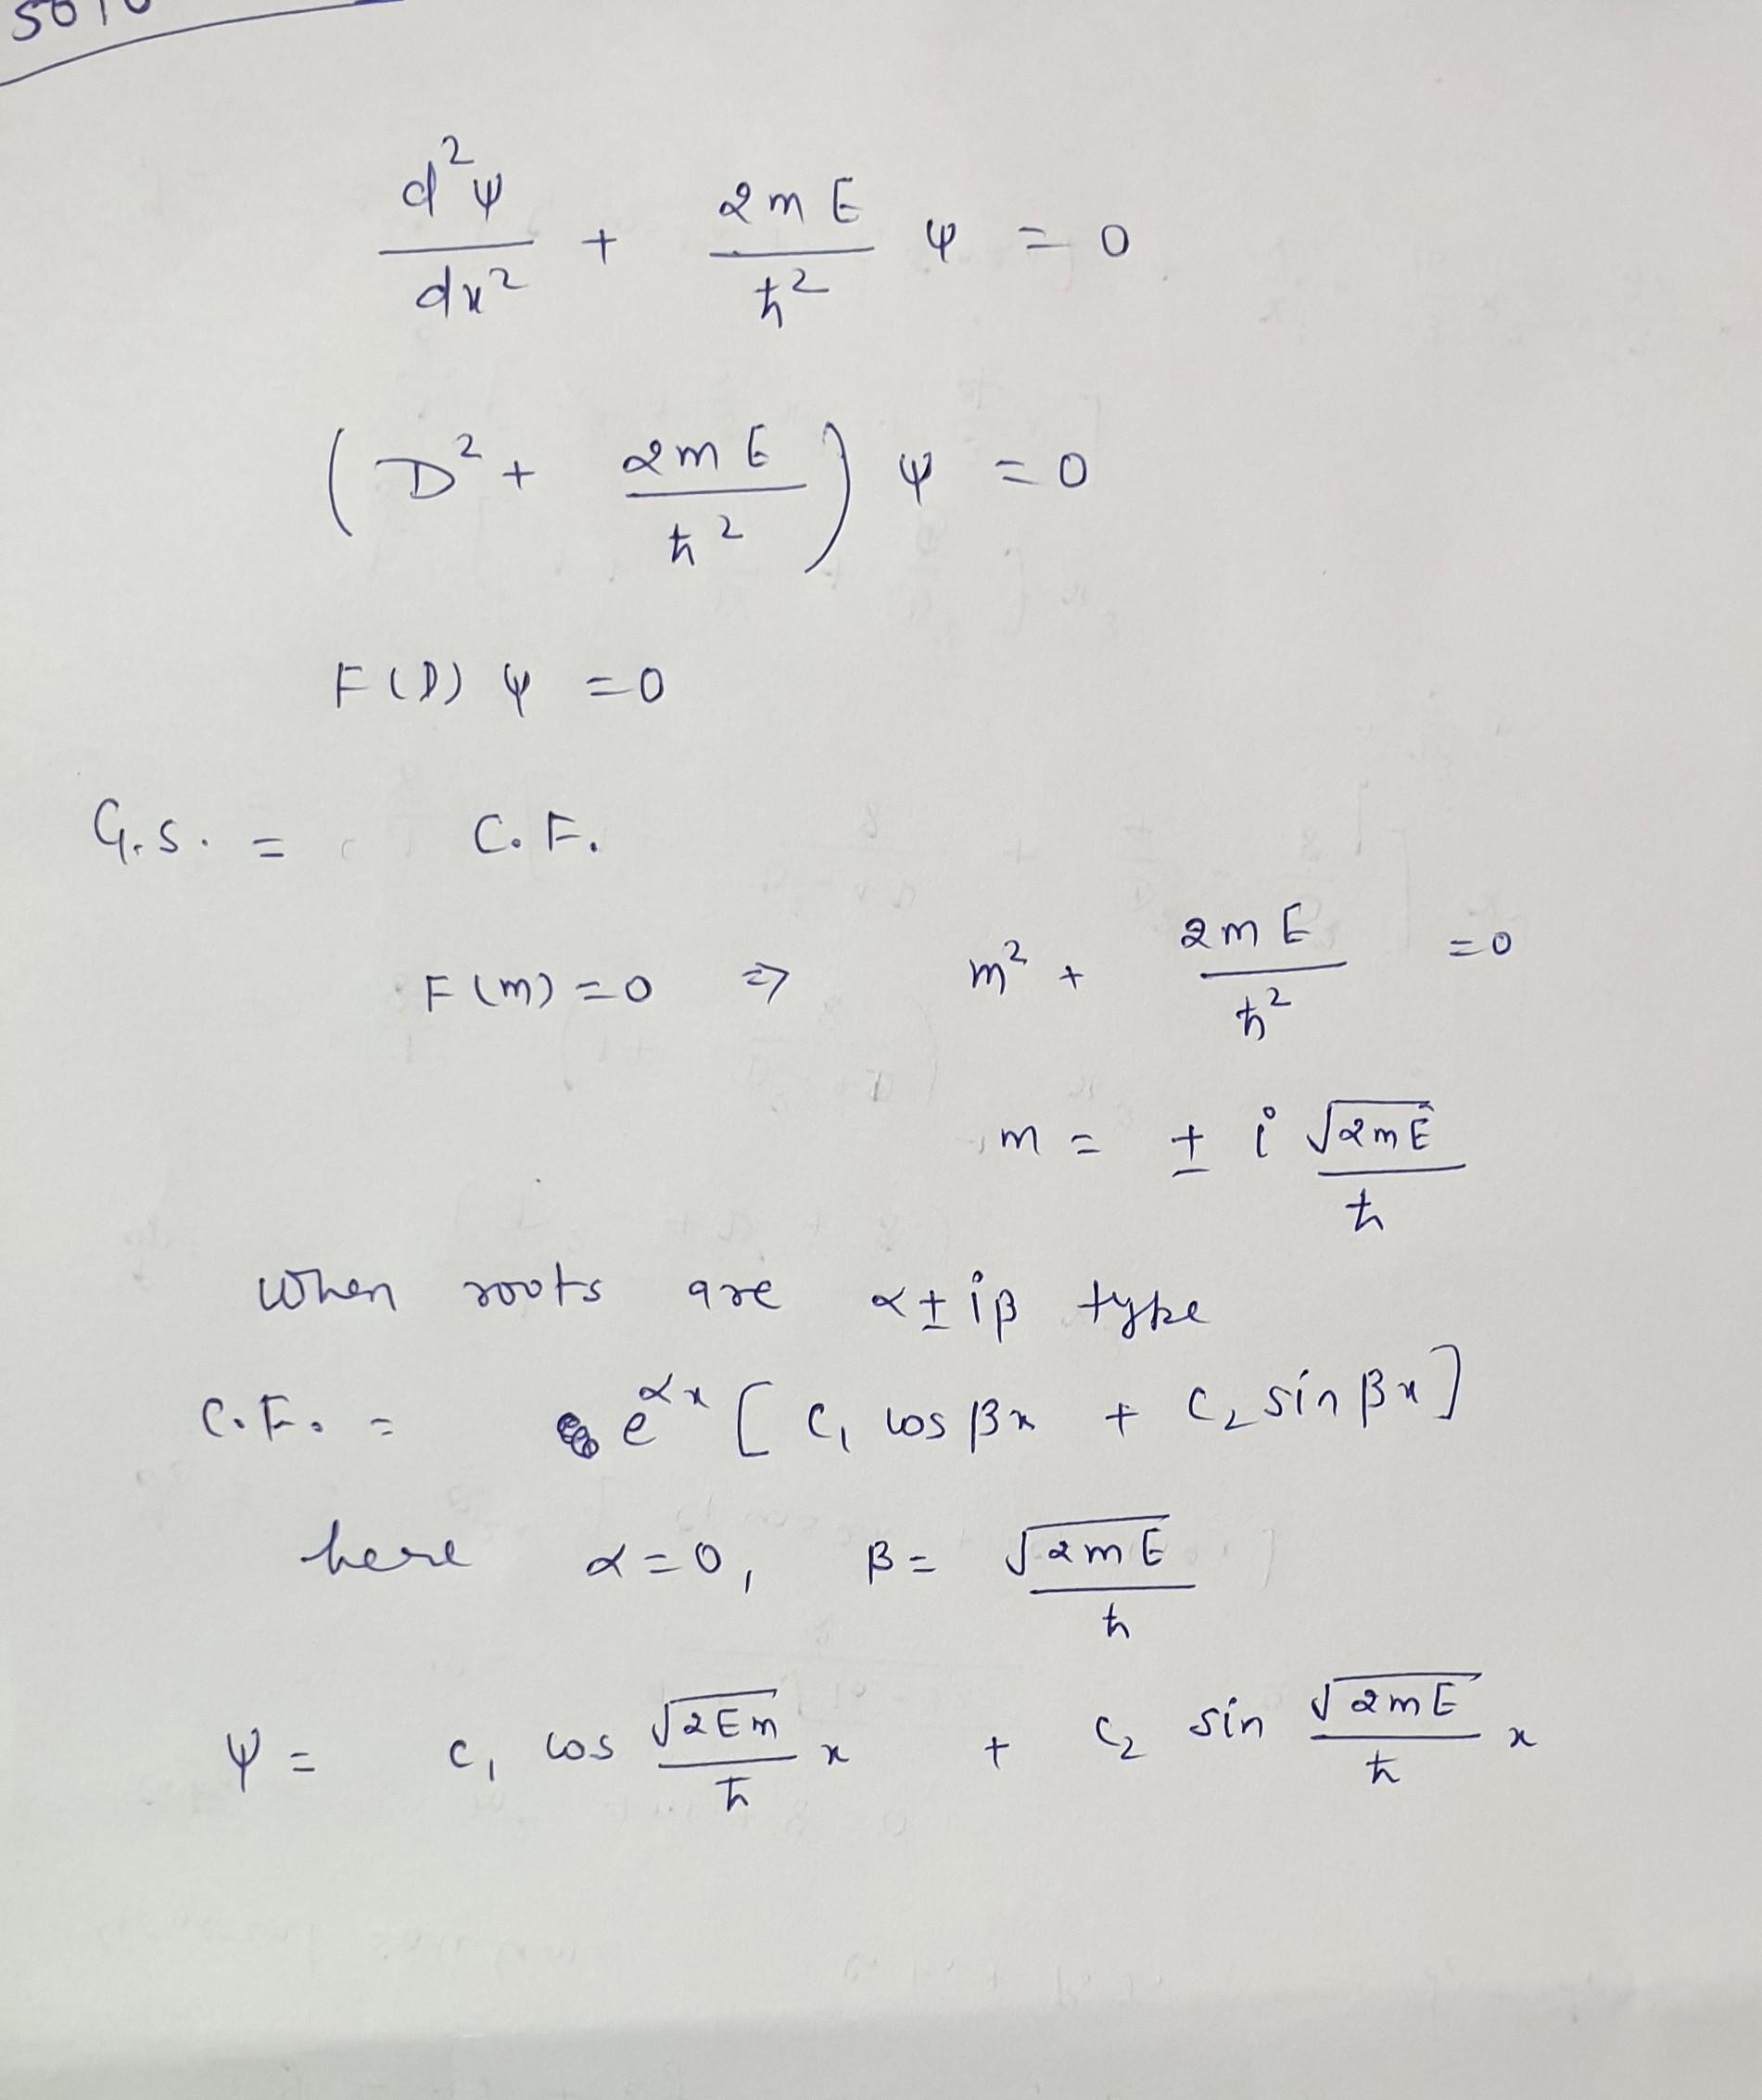 d²ψ/dx² + 2mE/ħ² ψ = 0
(D² + 2mE/ħ²) ψ = 0
F(D) ψ = 0
G.S. = C.F.
F(m) = 0 ⇒ m² + 2mE/ħ² = 0
m = ± i √2mE/ħ
when roots are α ± iβ type
C.F. = e^αx [ C₁ cos βx + C₂ sin βx ]
here α = 0, β = √2mE/ħ
ψ = C₁ cos √2Em/ħ x + C₂ sin √2mE/ħ x